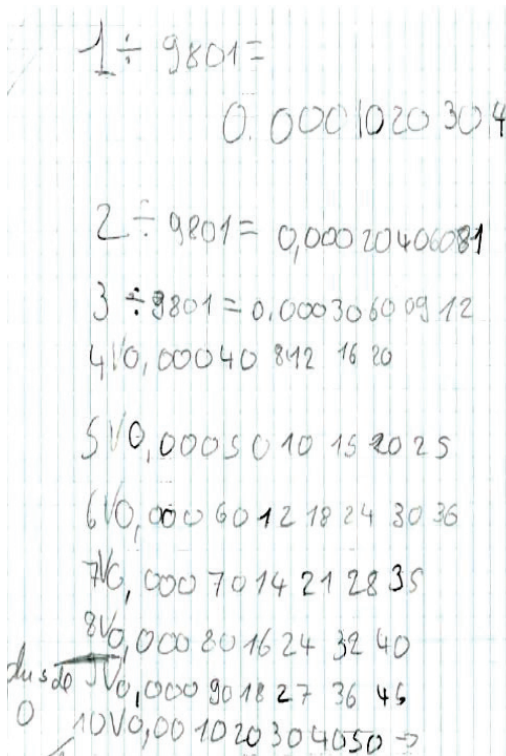 1 ÷ 9801 =
0.0001020304
2 ÷ 9801 = 0,00020406081
3 ÷ 9801 = 0.000306009 12
4 V0,00040 812 16 20
5 V0,0005 0 10 15 20 25
6 V0,000 60 12 18 24 30 36
7 V0,000 7014 21 28 35
8 V0,000 80 16 24 32 40
9 V0,000 90 18 27 36 45
0
10 V0,00 10 20 304050 →